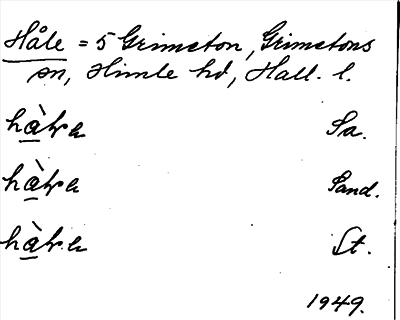 Håle = 5 Grimeton, Grimetons
sn, Himle hd, Hall. l.
Sa.
Sand.
St.
1949.